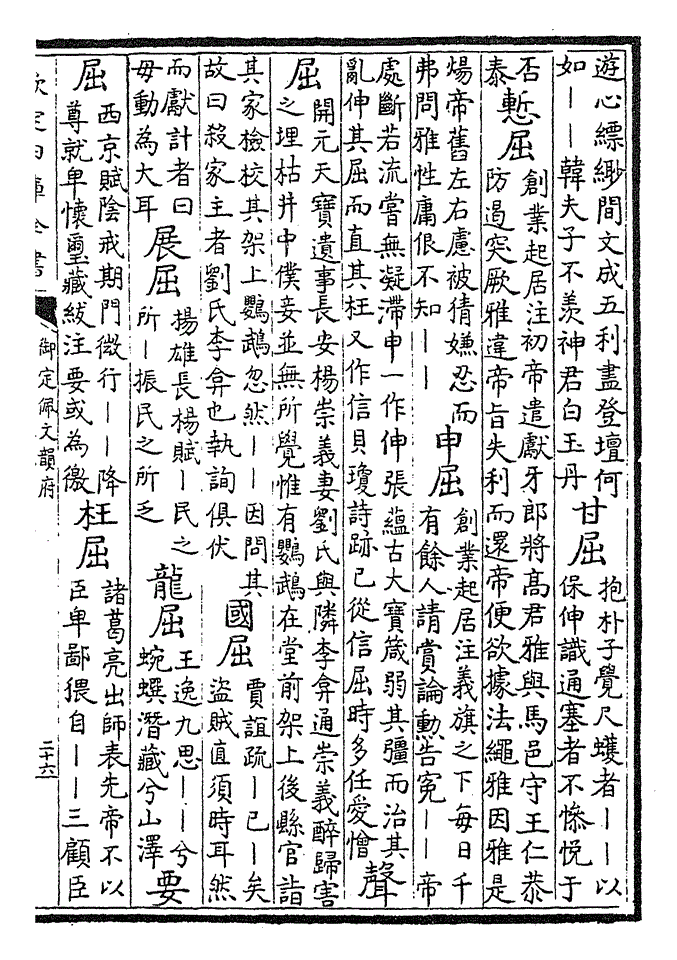 遊心縹緲間文成五利盡登壇何
如——韓夫子不羨神君白玉丹
甘屈
抱朴子覺尺蠖者——以
保伸識通塞者不慘悅于
否
泰
慙屈
創業起居注初帝遣獻牙郎將高君雅與馬邑守王仁恭
防遏突厥雅違帝旨失利而還帝便欲據法繩雅因雅是
煬帝舊左右慮被猜嫌忍而
弗問雅性庸佷不知——
申屈
創業起居注義旗之下每日千
有餘人請賞論勲告冤——帝
處斷若流嘗無凝滯申一作伸張蘊古大寶箴弱其彊而治其
亂伸其屈而直其枉又作信貝瓊詩跡已從信屈時多任愛憎
聲
屈
開元天寶遺事長安楊崇義妻劉氏與隣李弇通崇義醉歸害
之埋枯井中僕妾並無所覺惟有鸚鵡在堂前架上後縣官詣
其家檢校其架上鸚鵡忽然——因問其
故曰殺家主者劉氏李弇也執詢俱伏
國屈
賈誼疏—已—矣
盜賊直須時耳然
而獻計者曰
毋動為大耳
展屈
揚雄長楊賦—民之
所—振民之所乏
龍屈
王逸九思——兮
蜿蟤潛藏兮山澤
要
屈
西京賦陰戒期門微行——降
尊就卑懷璽藏紱注要或為徼
枉屈
諸葛亮出師表先帝不以
臣卑鄙猥自——三顧臣
欽定四庫全書
御定佩文韻府
二十六